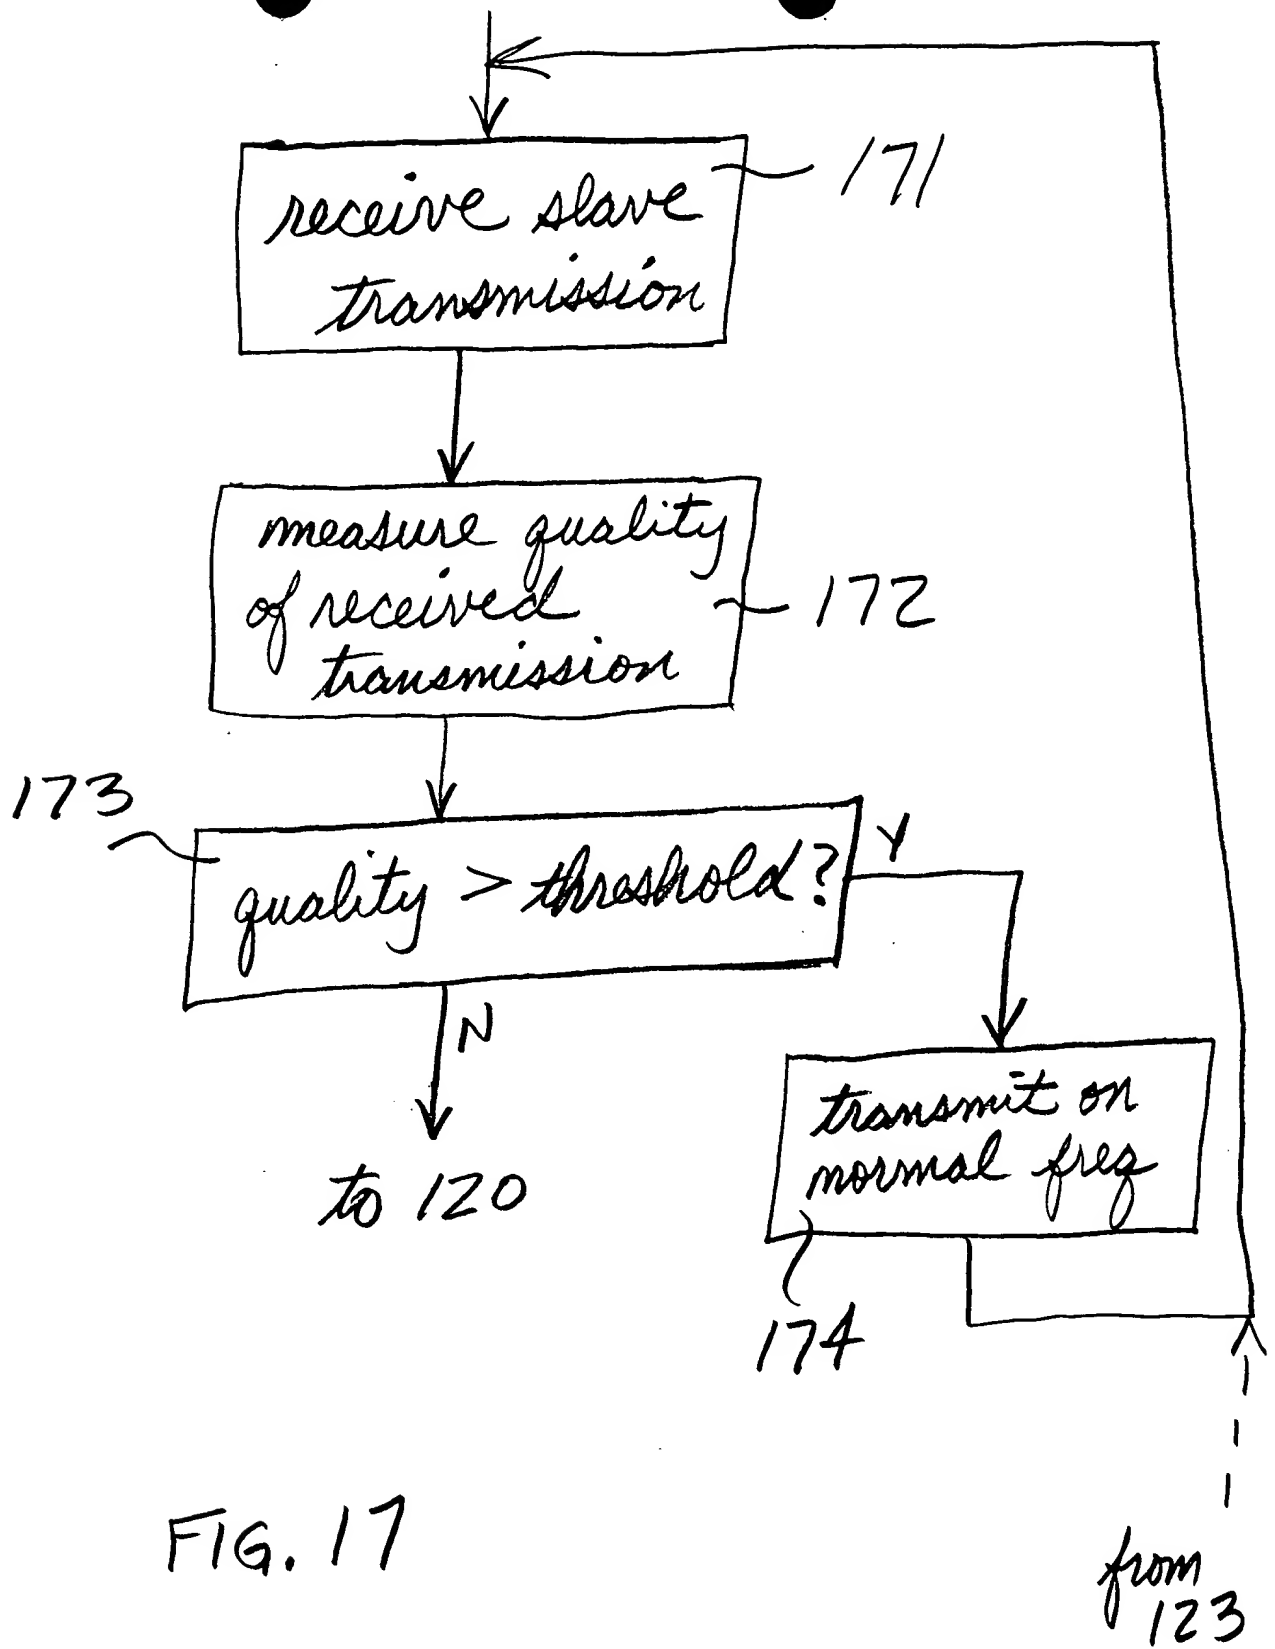 171
receive slave
transmission
measure quality
of received
transmission
172
173
quality > threshold?
Y
N
to 120
transmit on
normal freq
174
FIG. 17
from
123